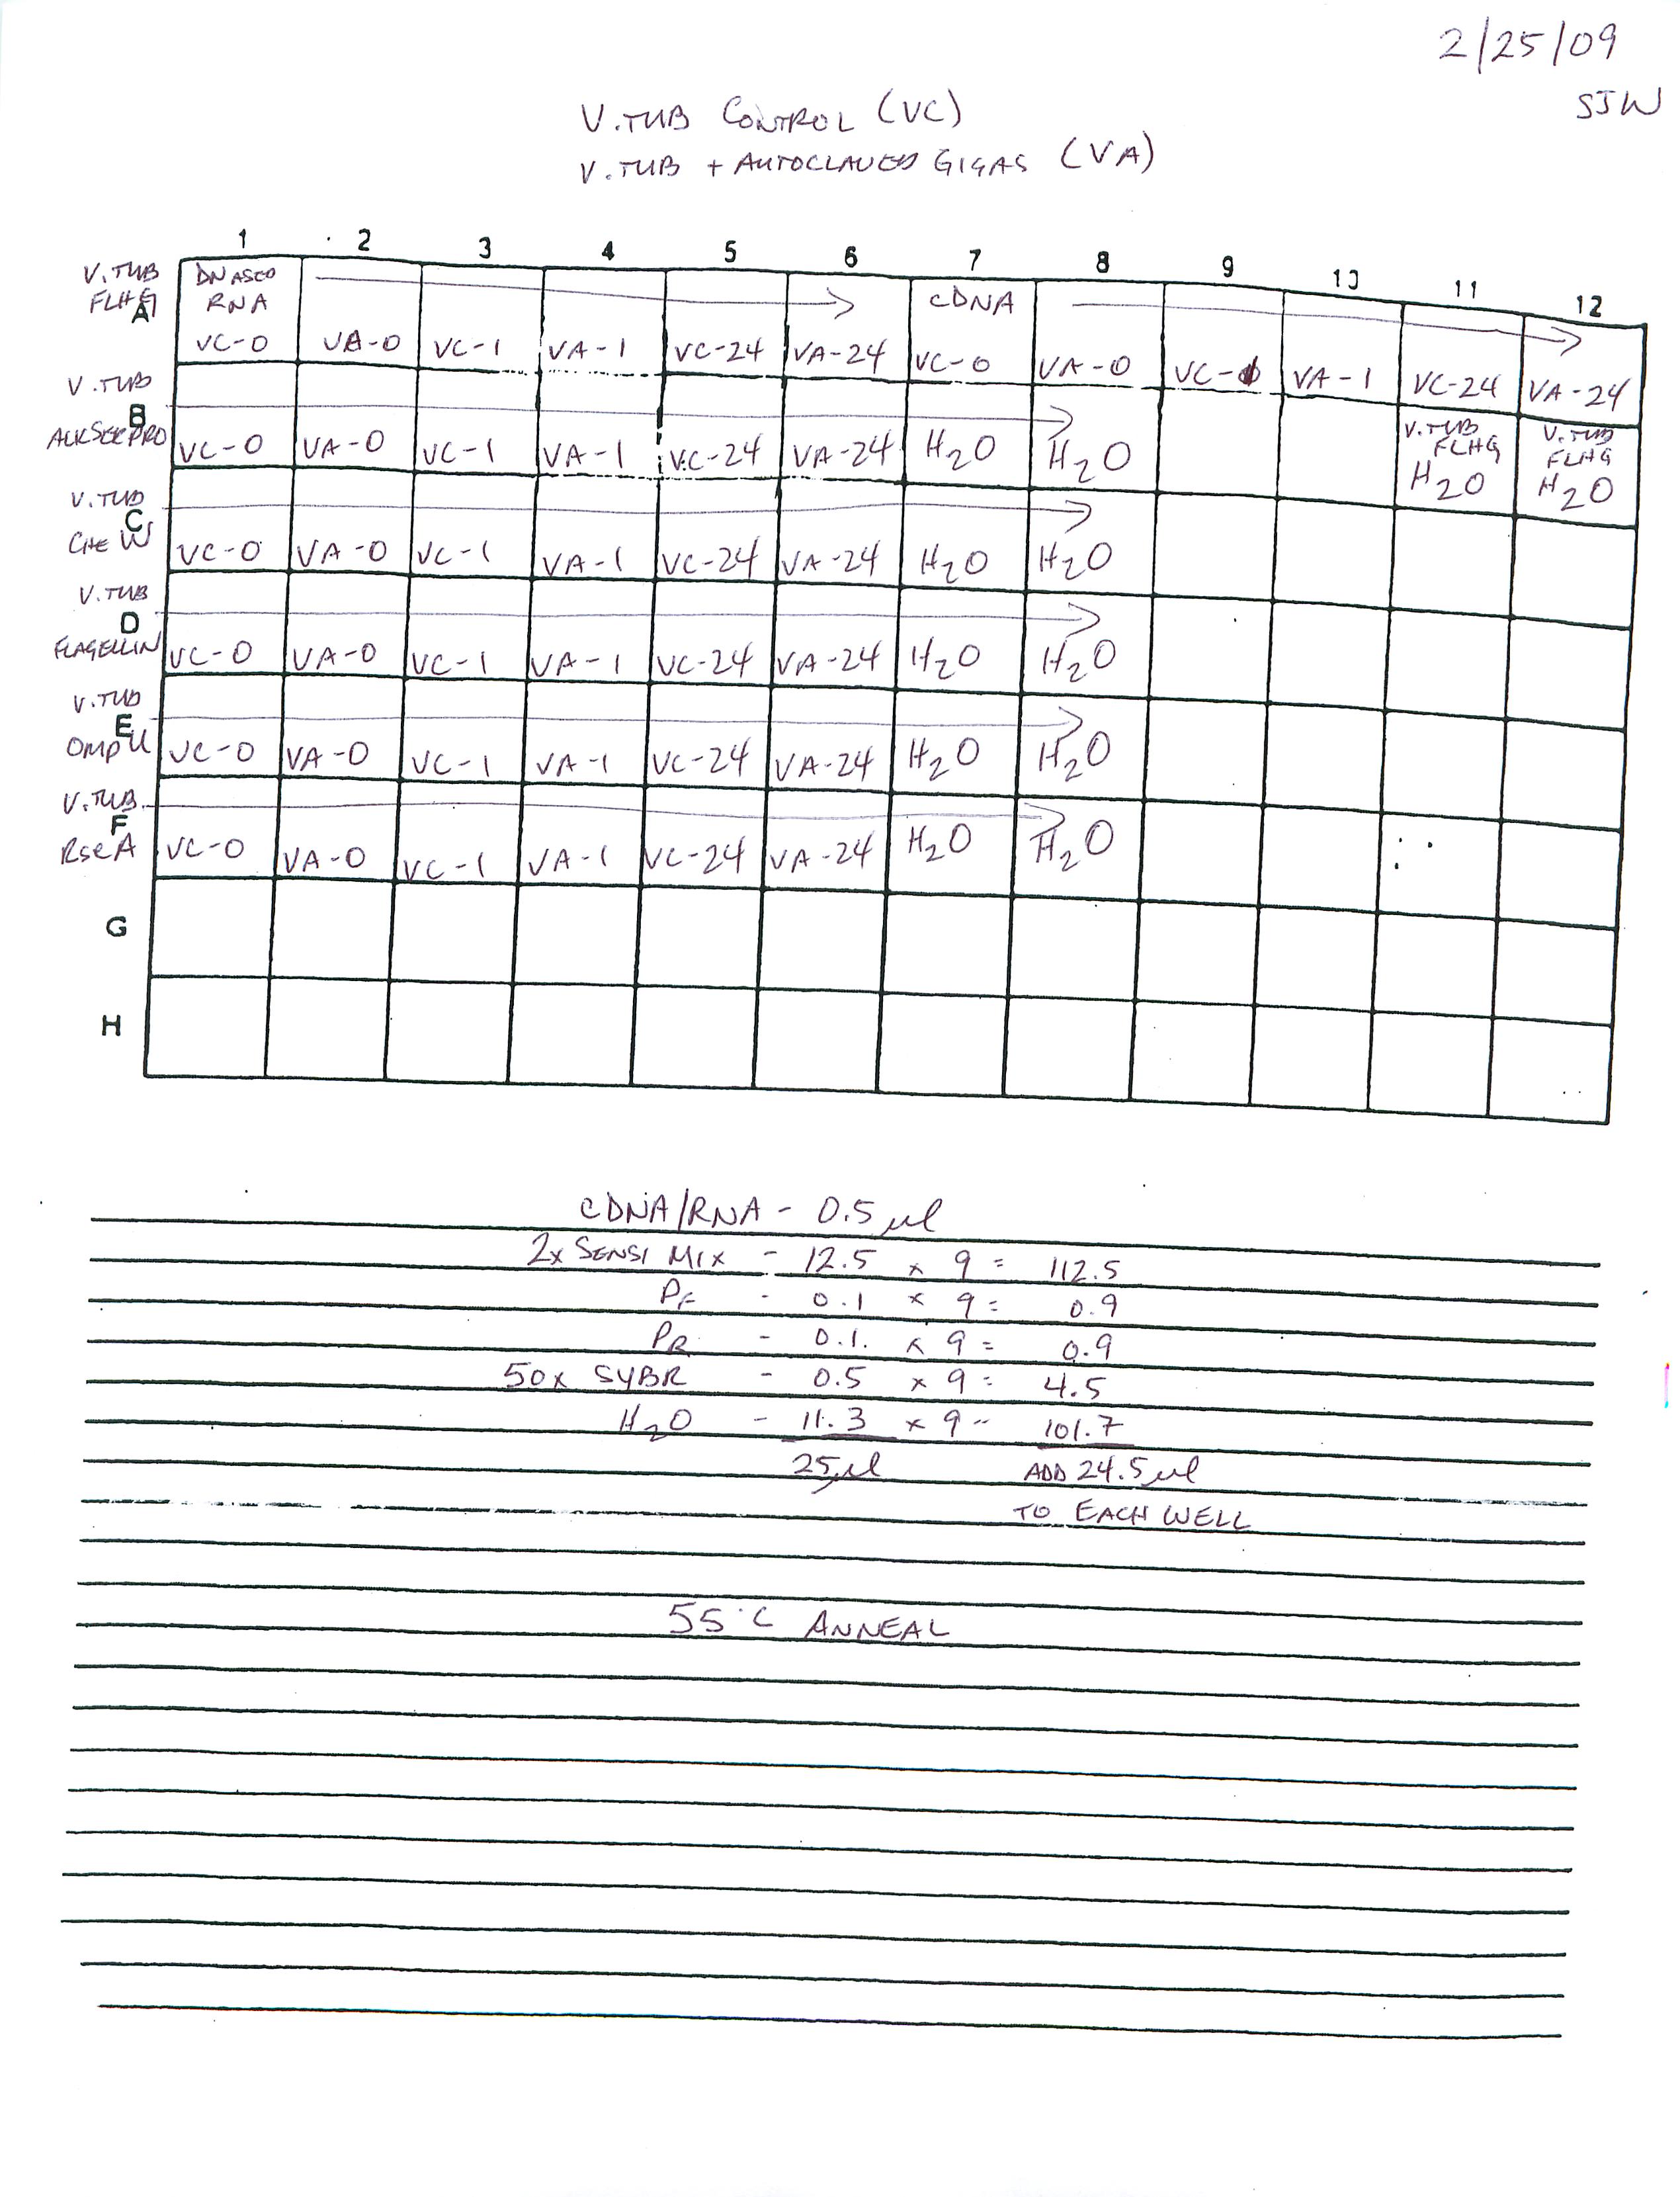 2/25/09
SJW
V.TUB CONTROL (VC)
V.TUB + AUTOCLAVED GIGAS (VA)
1 2 3 4 5 6 7 8 9 10 11 12
V.TUB FLHG A
DNASED RNA VC-0 VA-0 VC-1 VA-1 VC-24 VA-24 CDNA VC-0 VA-0 VC-1 VA-1 VC-24 VA-24
V.TUB B ALKSERPRO
VC-0 VA-0 VC-1 VA-1 VC-24 VA-24 H2O H2O V.TUB FLHG H2O V.TUB FLHG H2O
V.TUB C CHEW
VC-0 VA-0 VC-1 VA-1 VC-24 VA-24 H2O H2O
V.TUB D FLAGELLIN
VC-0 VA-0 VC-1 VA-1 VC-24 VA-24 H2O H2O
V.TUB E OMPU
VC-0 VA-0 VC-1 VA-1 VC-24 VA-24 H2O H2O
V.TUB. F RSEA
VC-0 VA-0 VC-1 VA-1 VC-24 VA-24 H2O H2O
G
H
CDNA/RNA - 0.5 µl
2x SENSI MIX - 12.5 x 9 = 112.5
PF - 0.1 x 9 = 0.9
PR - 0.1. x 9 = 0.9
50x SYBR - 0.5 x 9 = 4.5
H2O - 11.3 x 9 = 101.7
25µl ADD 24.5µl
TO EACH WELL
55°C ANNEAL